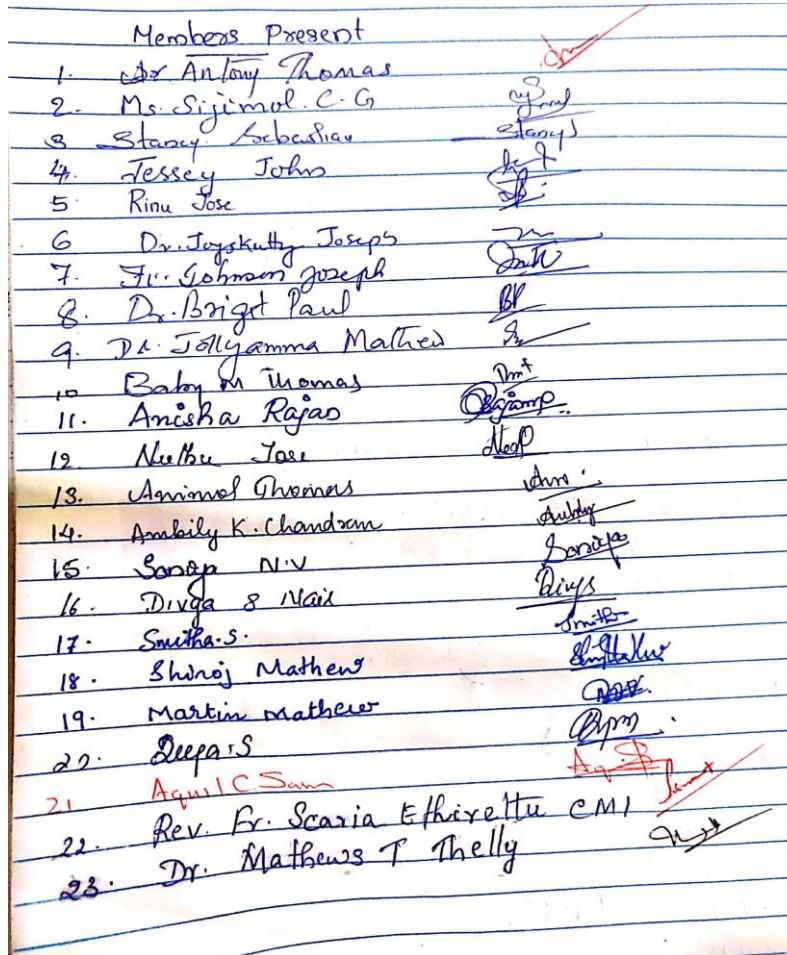 Members Present
1. Dr Antony Thomas
2. Ms. Sijimol. C. G
3 Stancy Sebastian Stancy
4. Jessey John
5. Rinu Jose
6 Dr. Joyskutty Joseph
7. Fr. Johnson Joseph
8. Dr. Brigit Paul BP
9. Dr. Jollyamma Mathew
10 Baby M Thomas
11. Anisha Rajan
12 Neethu Jose
13. Animol Thomas
14. Ambily K. Chandran
15. Soniya N.V Soniya
16. Divya S Nair Divya
17. Smitha.S. Smitha
18. Shinoj Mathew
19. Martin Mathew
20. Deepa.S
21 Aquil C Sam
22. Rev. Fr. Scaria Ethirettu CMI
23. Dr. Mathews T Thelly